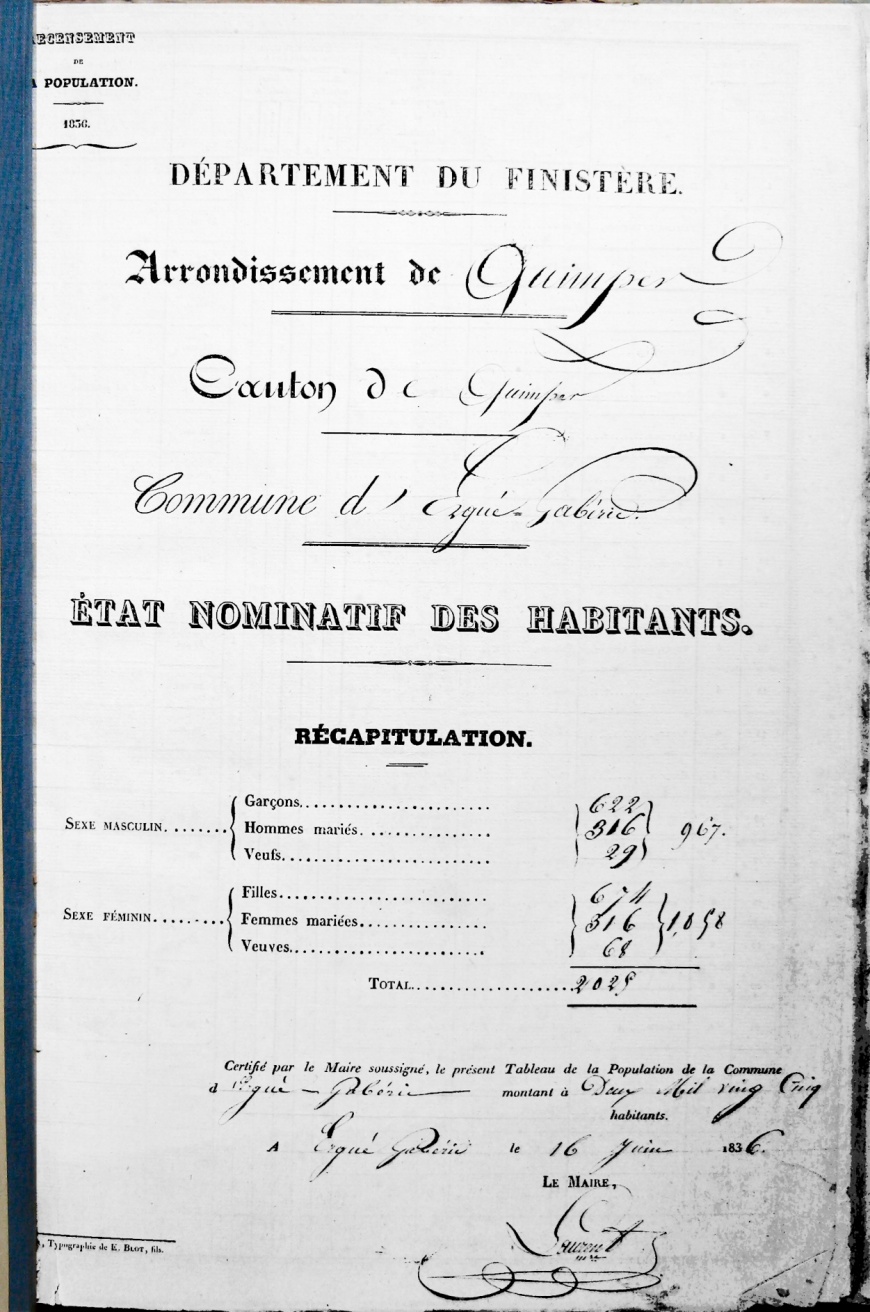 RECENSEMENT
DE
A POPULATION.
1836.
DÉPARTEMENT DU FINISTÈRE.
Arrondissement de Quimper
Canton de Quimper
Commune d' Ergué-Gabéric.
ÉTAT NOMINATIF DES HABITANTS.
RÉCAPITULATION.
SEXE MASCULIN........
Garçons........................ 622
Hommes mariés.................. 316 967.
Veufs.......................... 29
SEXE FÉMININ........
Filles......................... 674
Femmes mariées................. 316 1,058
Veuves......................... 68
TOTAL.................... 2025
Certifié par le Maire soussigné, le présent Tableau de la Population de la Commune
d Ergué-Gabéric montant à Deux Mil ving Cinq
habitants.
A Ergué Gabéric le 16 Juin 1836.
LE MAIRE,
Laurent
mre
, Typographie de E. BLOT, fils.